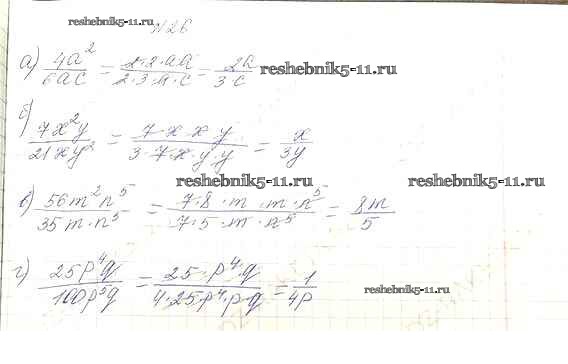 reshebnik5-11.ru
№26
а) 4a²/6ac = 2·2·aa/2·3·a·c = 2a/3c reshebnik5-11.ru
б) 7x²y/21xy² = 7·x·x·y/3·7·x·y·y = x/3y
reshebnik5-11.ru reshebnik5-11.ru
в) 56m²n⁵/35m·n⁵ = 7·8·m·m·n⁵/7·5·m·n⁵ = 8m/5
г) 25p⁴q/100p⁵q = 25·p⁴·q/4·25·p⁴·p·q = 1/4p reshebnik5-11.ru